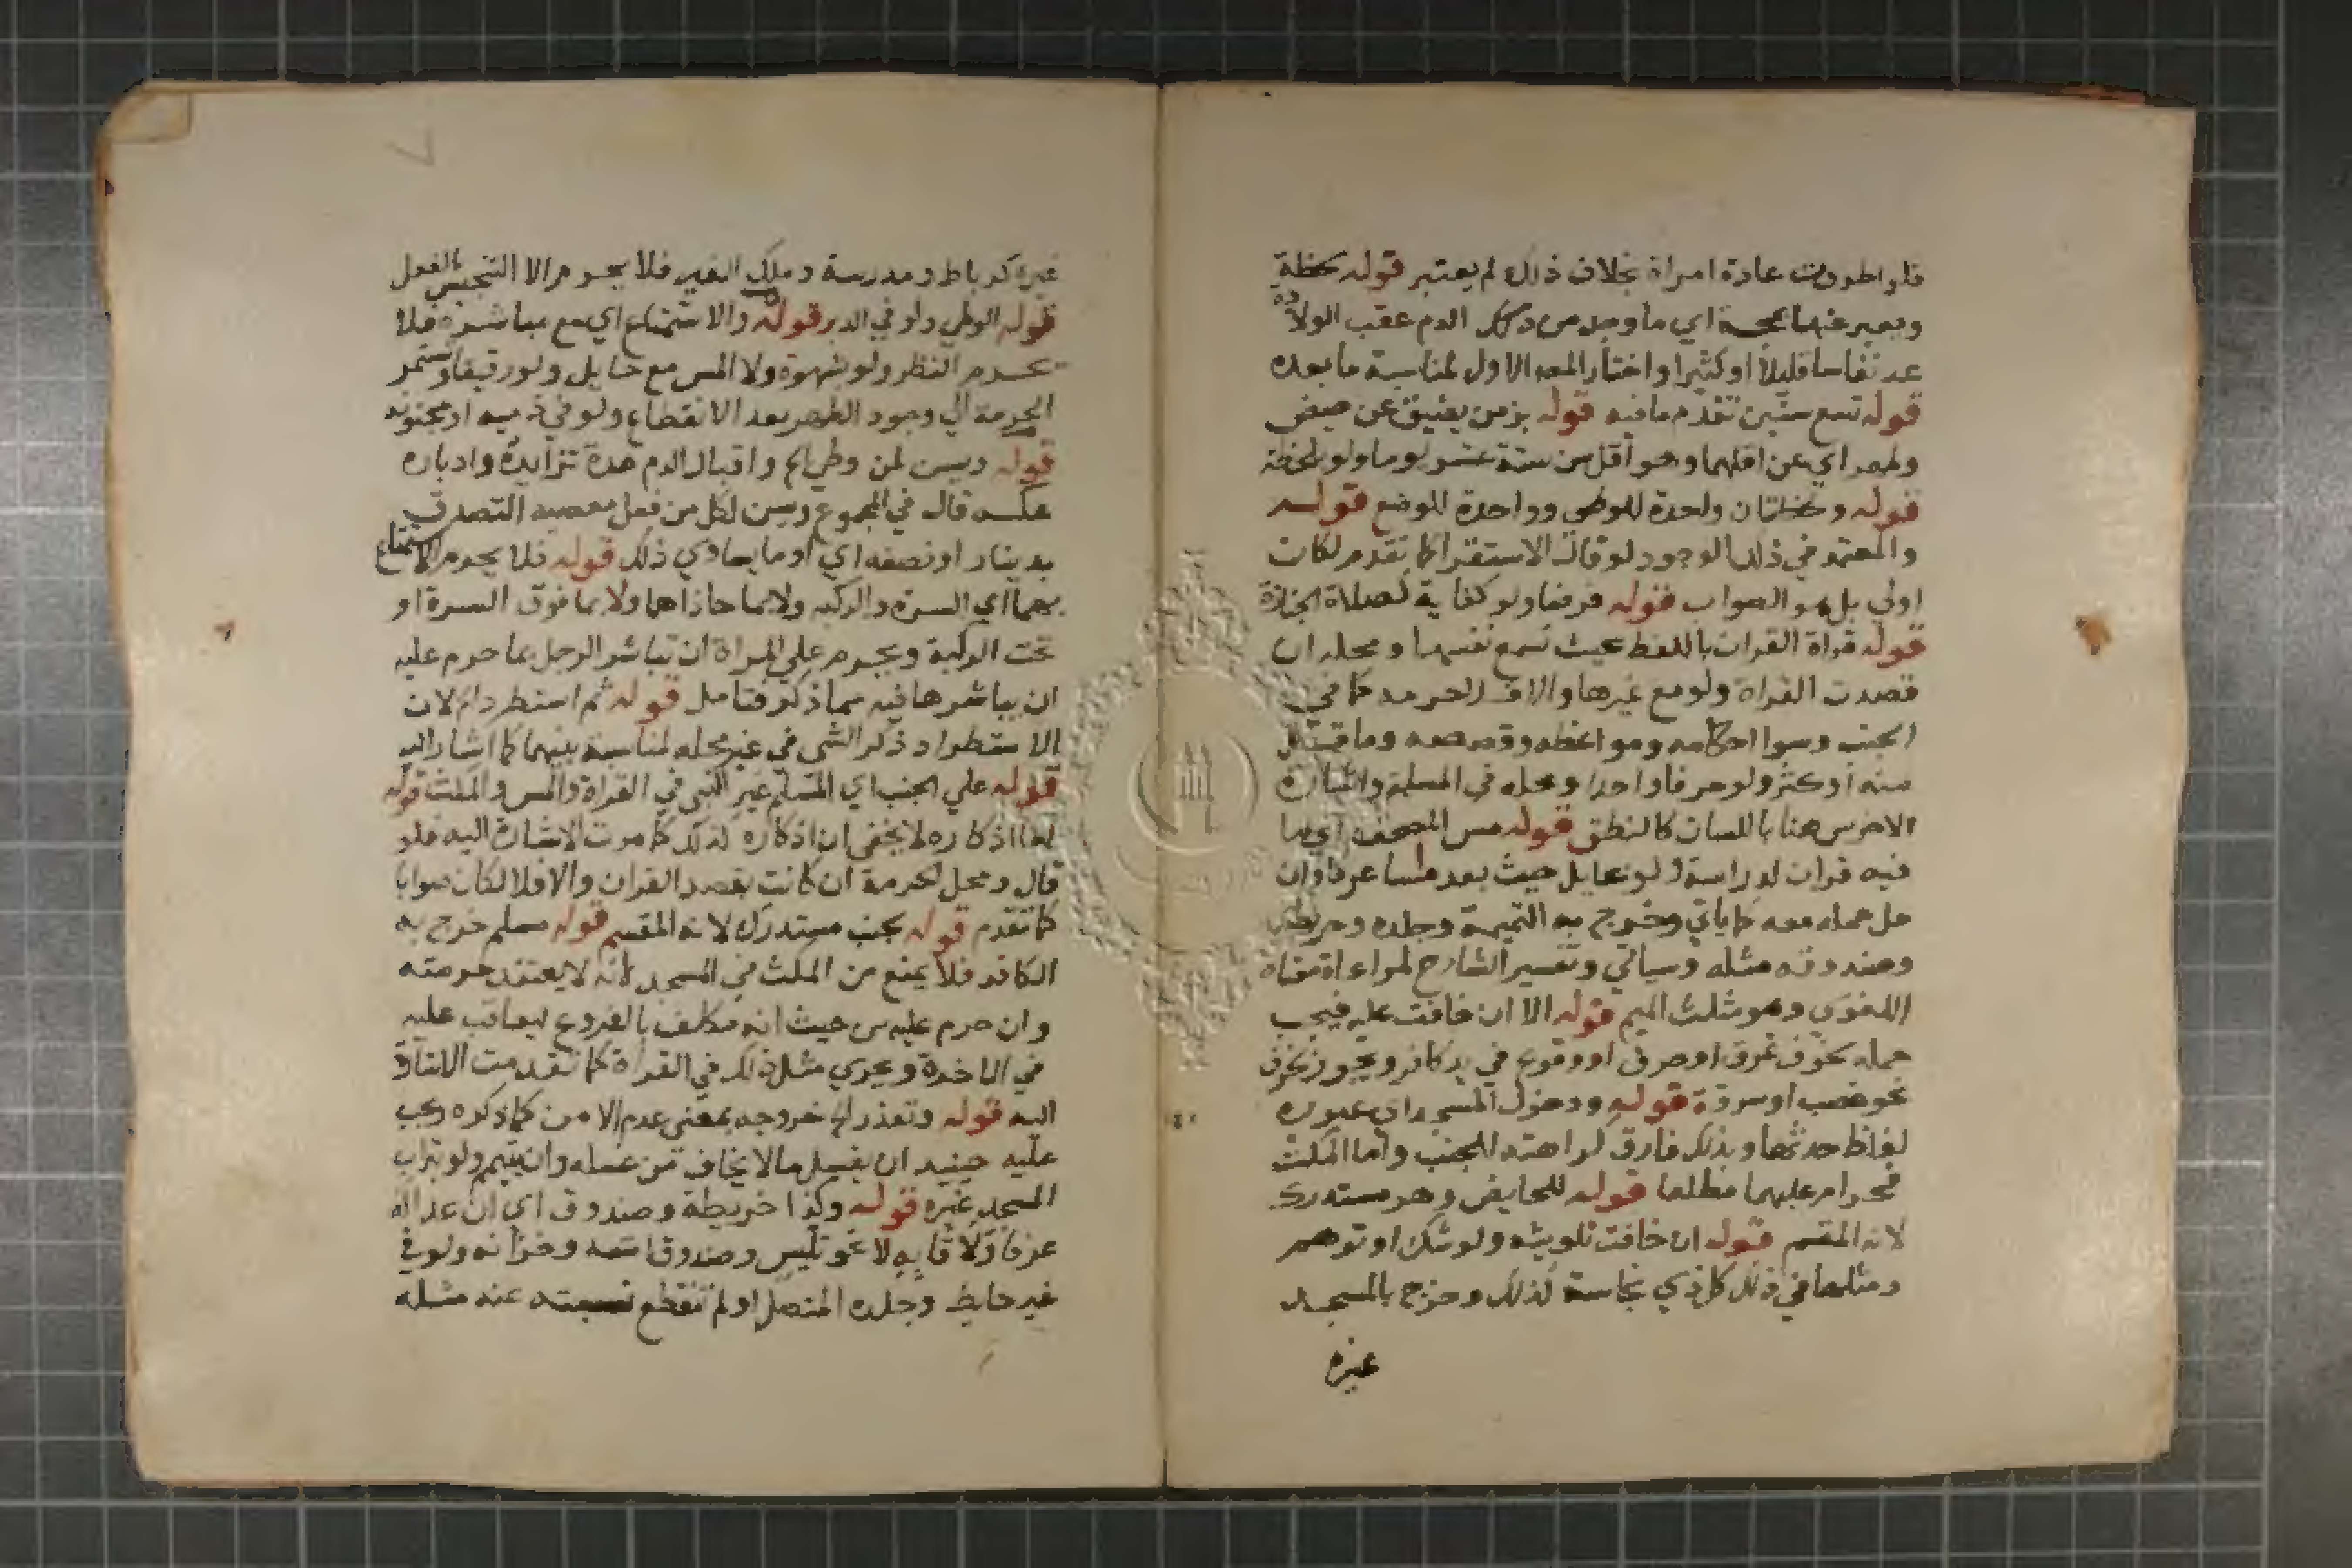 فلو اطردت عادة امراة بخلاف ذلك لم يعتبر قوله لحظة
ويعبر عنها بمجة اي ما وجد من ذلك الدم عقب الولادة
عد نفاسا قليلا او كثيرا واختار المص الاول لمناسبة ما بعده
قوله تسع سنين تقدم ما فيه قوله بزمن يضيق عن حيض
وطهر اي عن اقلهما وهو اقل من ستة عشر يوما ولو بلحظة
قوله ولحظتان واحدة للوطي وواحدة للوضع قوله
والمعتمد في ذلك الوجود لو قال الاستقرا كما تقدم لكان
اولي بل هو الصواب قوله فرضا ولو كفاية لصلاة الجنازة
قوله قراة القران باللفظ بحيث تسمع نفسها ومحله ان
قصدت القراة ولو مع غيرها والا فلا حرمة كما في
الجنب وسوا احكامه ومواعظه وقصصه وما
منه او كثر ولو حرفا واحدا ومحله في المسلمة واشارة
الاخرس هنا باللسان كالنطق قوله مس المصحف اي ما
فيه قران لدراسة ولو بحايل حيث يعد ماسا عرفا وان
حل حمله معه كما ياتي وخرج به التميمة وجلده وخريطته
وصندوقه مثله وسياتي وتفسير الشارح لمراعاة معناه
اللغوي وهو مثلث الميم قوله الا ان خافت عليه فيجب
حمله لخوف غرق او حرق او وقوع في يد كافر ويجوز لخوف
نحو غصب او سرقة قوله ودخول المسجد اي عبوره
لغلظ حدثها وبذلك فارق كراهته للجنب واما المكث
فحرام عليهما مطلقا قوله للحايض وهو مستدرك
لانه المقسم قوله ان خافت تلويثه ولو شك او توهم
ومثلها في ذلك كل ذي نجاسة كذلك وخرج بالمسجد
غيره
غيره كرباط ومدرسة وملك الغير فلا يحرم الا التنجيس بالفعل
قوله الوطي ولو في الدبر قوله والاستمتاع اي مع مباشرة فلا
يحرم النظر ولو بشهوة ولا المس مع حايل ولو رقيقا وتستمر
الحرمة الي وجود الطهر بعد الانقطاع ولو في ذمية او مجنونة
قوله ويسن لمن وطي الخ واقبال الدم مدة تزايده وادباره
عكسه قال في المجموع ويسن لكل من فعل معصية التصدق
بدينار او نصفه اي او ما يساوي ذلك قوله فلا يحرم الاستمتاع
بهما اي السرة والركبة ولا بما حاذاهما ولا بما فوق السرة او
تحت الركبة ويحرم علي المراة ان تباشر الرجل بما حرم عليه
ان يباشرها فيه مما ذكر فتامل قوله ثم استطرد الخ لان
الاستطراد ذكر الشي في غير محله لمناسبة بينهما كما اشار اليه
قوله علي الجنب اي المسلم غير النبي في القراة والمس والمكث قوله
اذكاره لا يخفى ان اذكاره كذلك كما مرت الاشارة اليه فلو
قال ومحل الحرمة ان كانت بقصد القران والا فلا لكان صوابا
كما تقدم قوله بجنب مستدرك لانه المقسم قوله مسلم خرج به
الكافر فلا يمنع من المكث في المسجد لانه لا يعتقد حرمته
وان حرم عليه من حيث انه مكلف بالفروع ليعاقب عليه
في الاخرة ويجري مثل ذلك في القراة كما تقدمت الاشارة
اليه قوله وتعذر الخ خروجه بمعني عدم الامن كما ذكره ويجب
عليه حينيذ ان يغسل ما لا يخاف من غسله وان يتيمم ولو بتراب
المسجد غيره قوله وكذا خريطة وصندوق اي ان عدا له
عرفا ولاقا به لا نحو تليس وصندوق امتعه وخزانه ولو في
غير حايط وجلده المتصل او لم تنقطع نسبته عنه مثله